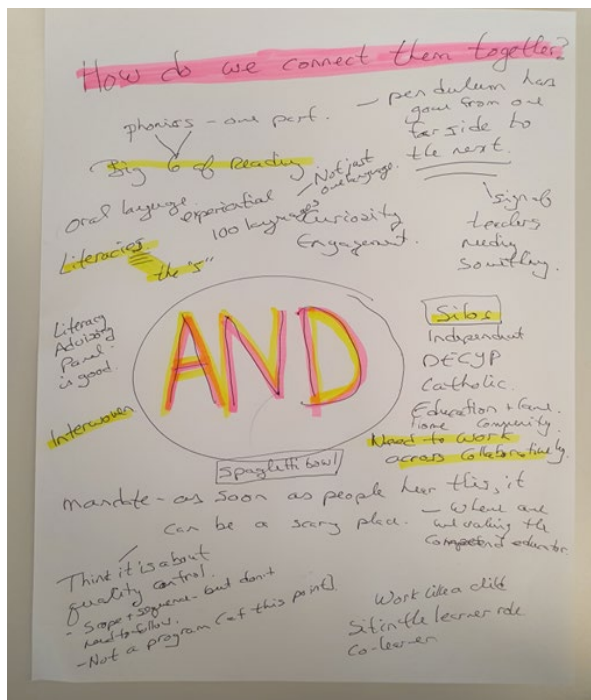 How do we connect them together?
phonics - one part.
- pendulum has
gone from one
far side to
the next.
Big 6 of Reading
Oral language
experiential
- Not just
one language.
100 languages
Curiosity
Engagement.
sign of
leaders
needing
something.
Literacies
the "s"
Literacy
Advisory
Panel
is good.
AND
Silos
Independent
DECYP
Catholic.
Education +
home Community.
Need to work
across Collaboratively.
Interwoven
Spaghetti bowl
mandate - as soon as people hear this, it
can be a scary place.
- Where are
the
educator.
Think it is about
quality control.
- Scope + sequence - but don't
need to follow.
- Not a program (at this point)
Work like a child
Sit in the learner role
Co-learner